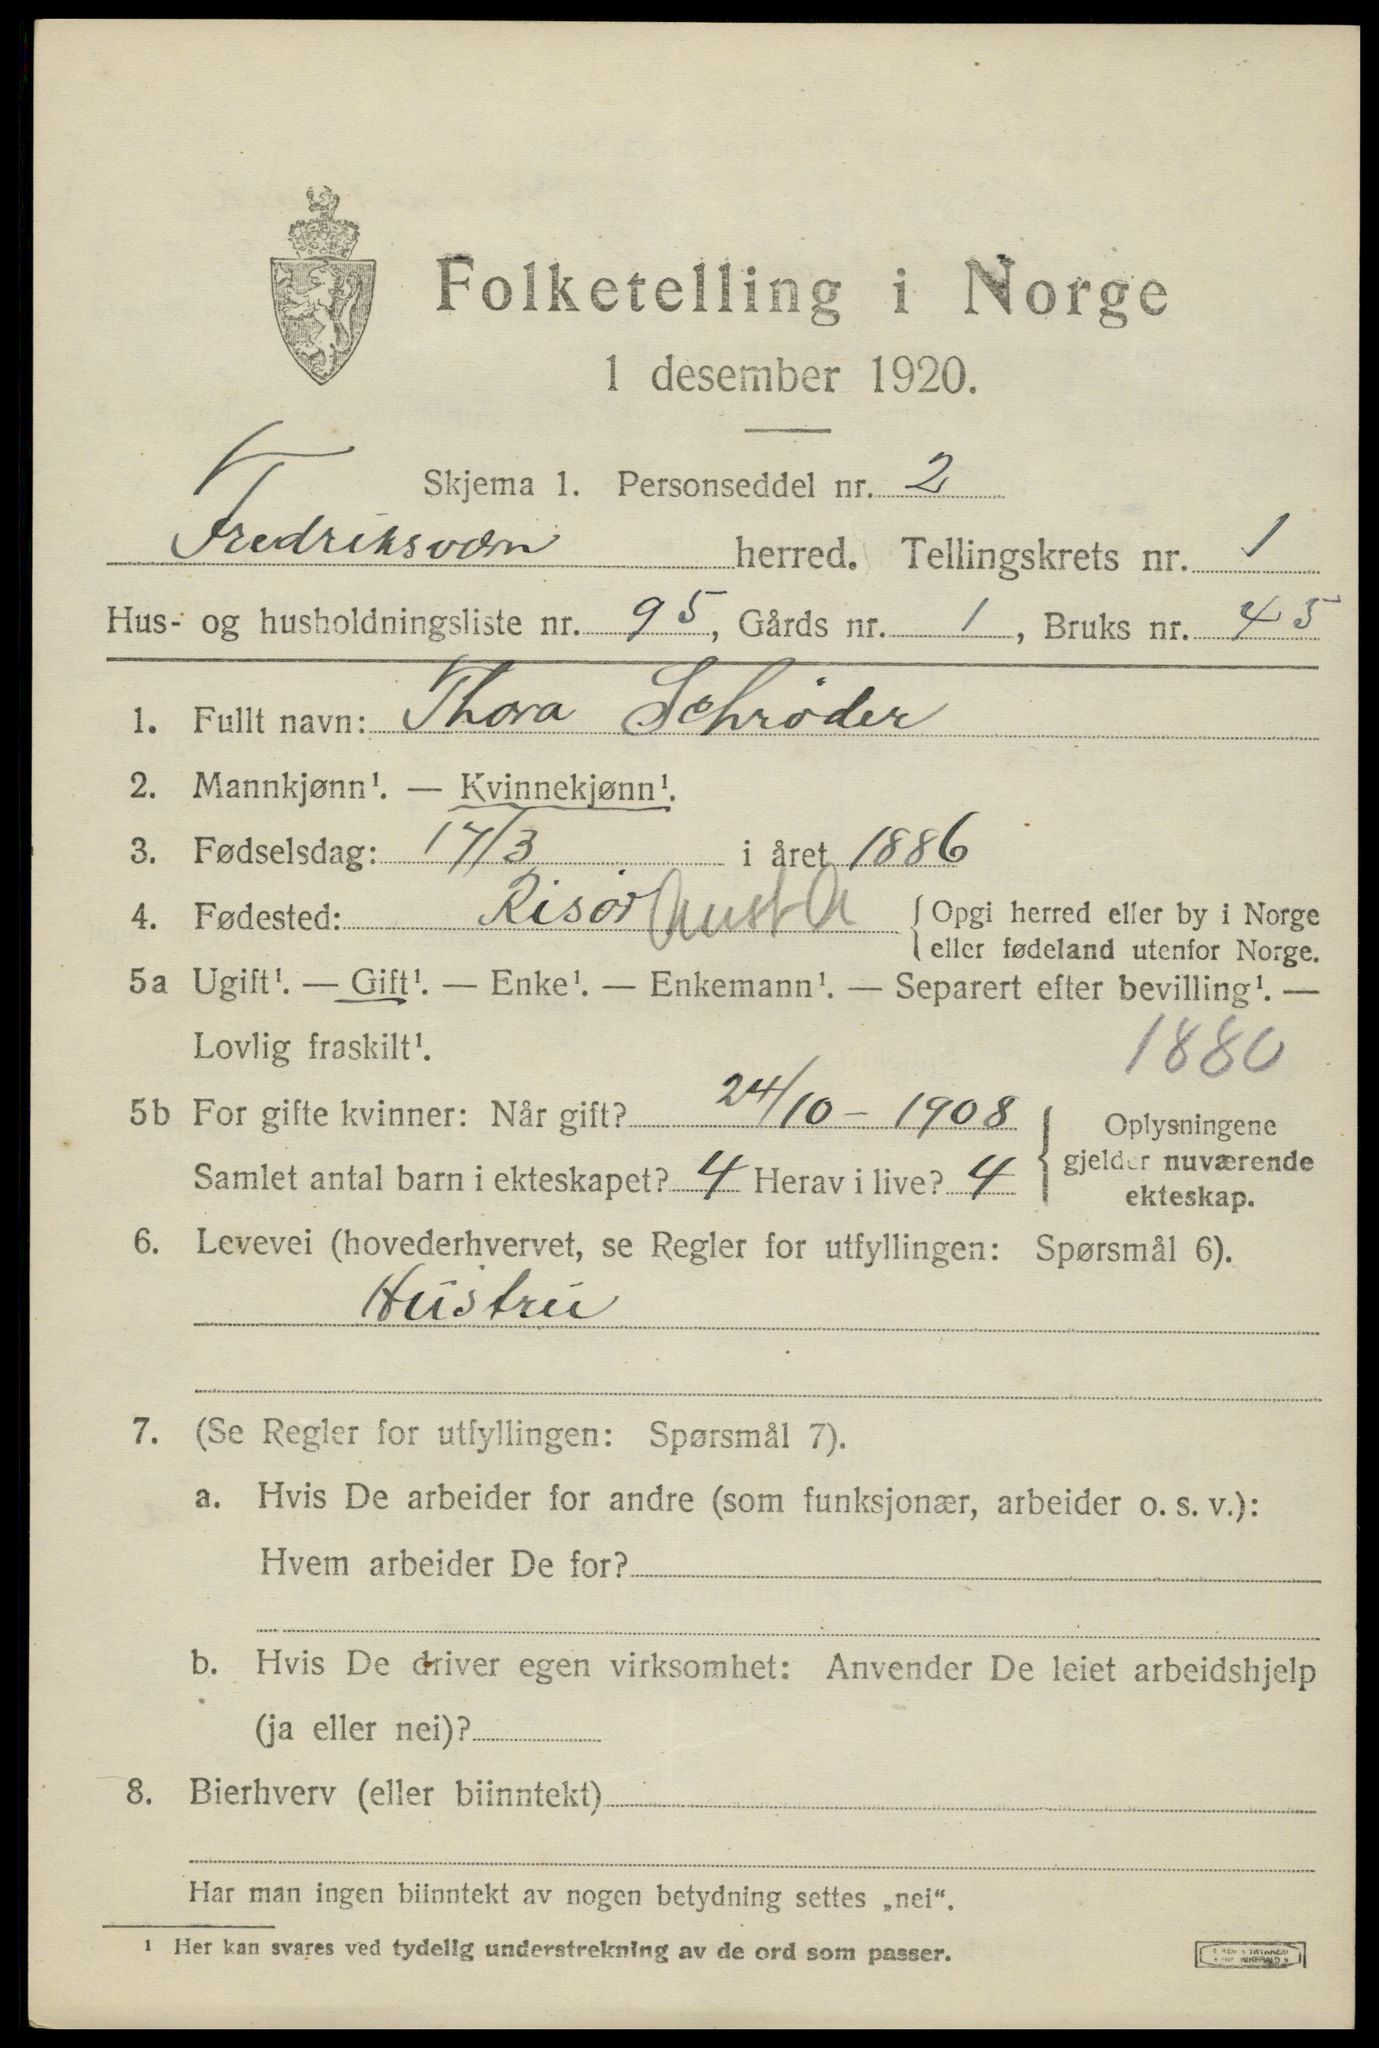 Folketelling i Norge
1 desember 1920.
Skjema 1. Personseddel nr. 2
Fredriksværn herred. Tellingskrets nr. 1
Hus- og husholdningsliste nr. 95, Gårds nr. 1, Bruks nr. 45
1. Fullt navn: Thora Schrøder
2. Mannkjønn¹. — Kvinnekjønn¹.
3. Fødselsdag: 17/3 i året 1886
4. Fødested: Risør Aust A { Opgi herred eller by i Norge
eller fødeland utenfor Norge.
5a Ugift¹. — Gift¹. — Enke¹. — Enkemann¹. — Separert efter bevilling¹. —
Lovlig fraskilt¹. 1880
5b For gifte kvinner: Når gift? 24/10 - 1908 { Oplysningene
gjelder nuværende
ekteskap.
Samlet antal barn i ekteskapet? 4 Herav i live? 4
6. Levevei (hovederhvervet, se Regler for utfyllingen: Spørsmål 6).
Hustru
7. (Se Regler for utfyllingen: Spørsmål 7).
a. Hvis De arbeider for andre (som funksjonær, arbeider o. s. v.):
Hvem arbeider De for?
b. Hvis De driver egen virksomhet: Anvender De leiet arbeidshjelp
(ja eller nei)?
8. Bierhverv (eller biinntekt)
Har man ingen biinntekt av nogen betydning settes „nei“.
¹ Her kan svares ved tydelig understrekning av de ord som passer.